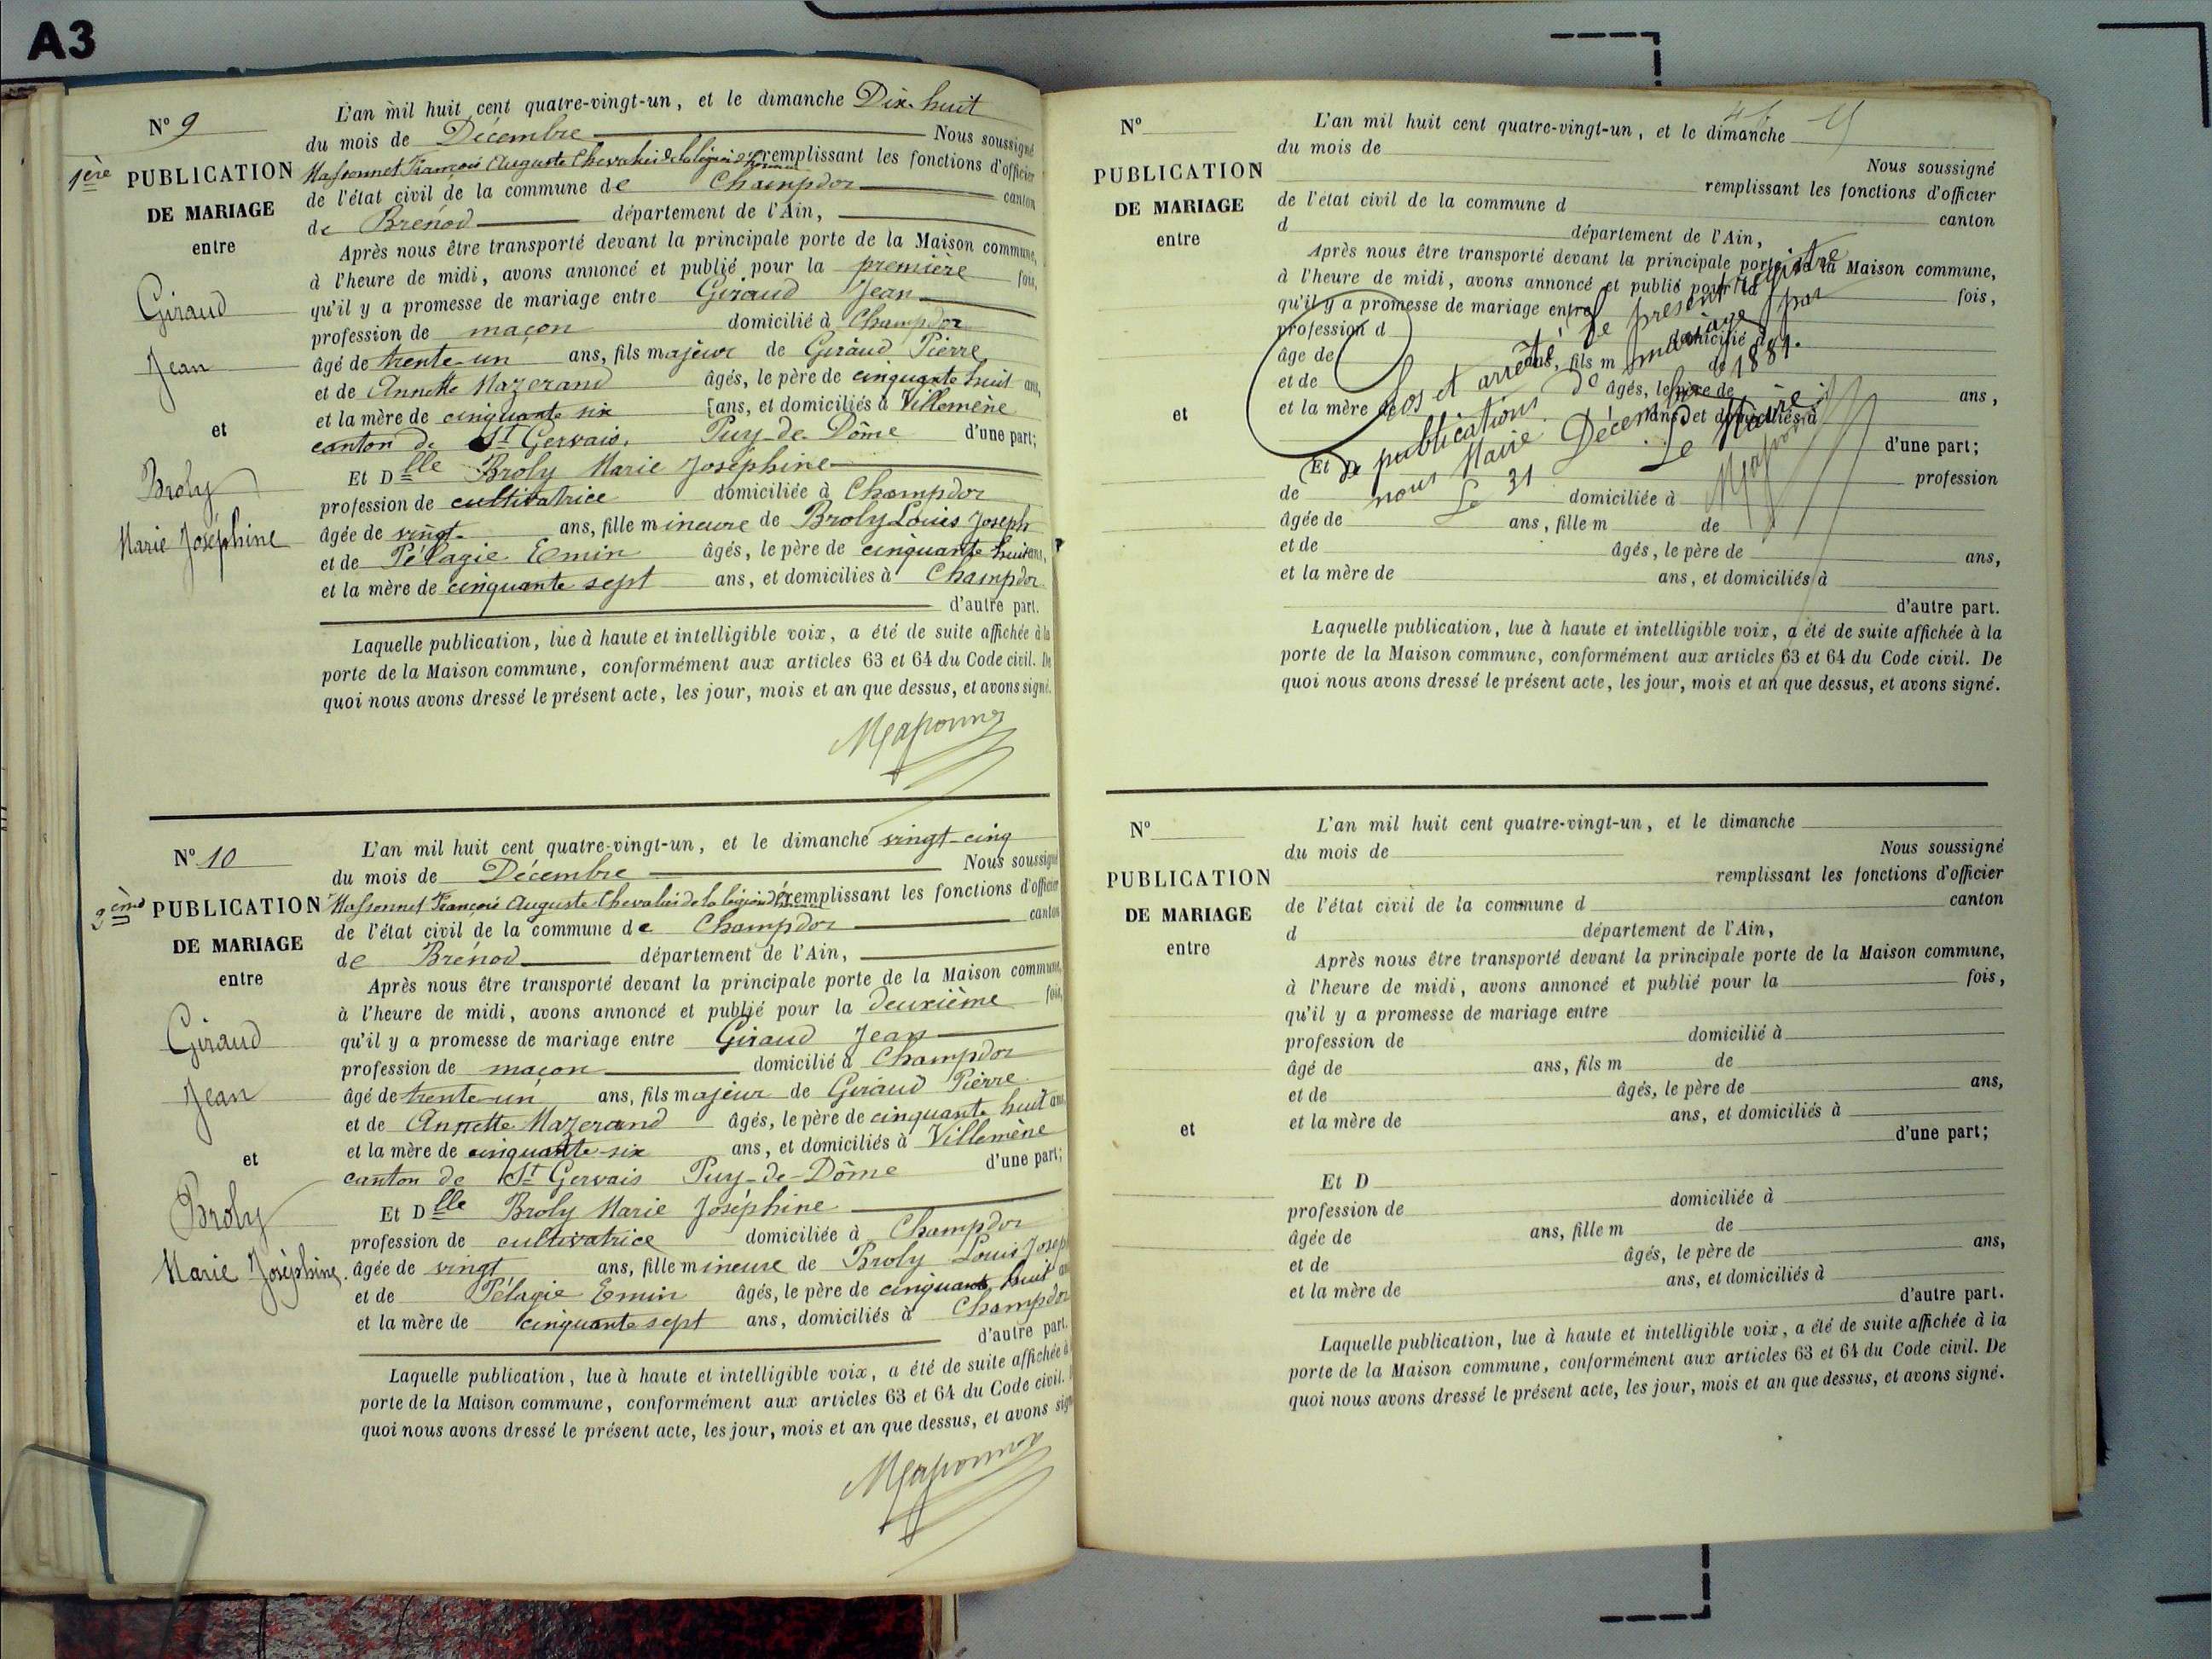 A3
N° 9
1ère PUBLICATION
DE MARIAGE
entre
Giraud
Jean
et
Broly
Marie Joséphine
L'an mil huit cent quatre-vingt-un, et le dimanche Dix-huit
du mois de Décembre Nous soussigné
Massonnet François Auguste Chevalier de la légion d'honneur remplissant les fonctions d'officier
de l'état civil de la commune de Champdor canton
de Brénod département de l'Ain,
Après nous être transporté devant la principale porte de la Maison commune,
à l'heure de midi, avons annoncé et publié pour la première fois,
qu'il y a promesse de mariage entre Giraud Jean
profession de maçon domicilié à Champdor
âgé de trente-un ans, fils majeur de Giraud Pierre
et de Annette Mazerand âgés, le père de cinquante huit ans,
et la mère de cinquante six ans, et domiciliés à Villemène
canton de St Gervais, Puy-de-Dôme d'une part;
Et Dlle Broly Marie Joséphine
profession de cultivatrice domiciliée à Champdor
âgée de vingt ans, fille mineure de Broly Louis Joseph
et de Pélagie Emin âgés, le père de cinquante huit ans,
et la mère de cinquante sept ans, et domiciliés à Champdor
d'autre part.
Laquelle publication, lue à haute et intelligible voix, a été de suite affichée à la
porte de la Maison commune, conformément aux articles 63 et 64 du Code civil. De
quoi nous avons dressé le présent acte, les jour, mois et an que dessus, et avons signé.
N° 10
2ème PUBLICATION
DE MARIAGE
entre
Giraud
Jean
et
Broly
Marie Joséphine.
L'an mil huit cent quatre-vingt-un, et le dimanche vingt-cinq
du mois de Décembre Nous soussigné
Massonnet François Auguste Chevalier de la légion d'h. remplissant les fonctions d'officier
de l'état civil de la commune de Champdor canton
de Brénod département de l'Ain,
Après nous être transporté devant la principale porte de la Maison commune,
à l'heure de midi, avons annoncé et publié pour la deuxième fois,
qu'il y a promesse de mariage entre Giraud Jean
profession de maçon domicilié à Champdor
âgé de trente-un ans, fils majeur de Giraud Pierre
et de Annette Mazerand âgés, le père de cinquante huit ans
et la mère de cinquante-six ans, et domiciliés à Villemène
canton de St Gervais Puy-de-Dôme d'une part;
Et Dlle Broly Marie Joséphine
profession de cultivatrice domiciliée à Champdor
âgée de vingt ans, fille mineure de Broly Louis Joseph
et de Pélagie Emin âgés, le père de cinquante huit ans
et la mère de cinquante sept ans, domiciliés à Champdor
d'autre part.
Laquelle publication, lue à haute et intelligible voix, a été de suite affichée à
porte de la Maison commune, conformément aux articles 63 et 64 du Code civil.
quoi nous avons dressé le présent acte, les jour, mois et an que dessus, et avons sign
N°
PUBLICATION
DE MARIAGE
entre
et
L'an mil huit cent quatre-vingt-un, et le dimanche
du mois de
Nous soussigné
remplissant les fonctions d'officier
de l'état civil de la commune d canton
d département de l'Ain,
Après nous être transporté devant la principale porte de la Maison commune,
à l'heure de midi, avons annoncé et publié pour la fois,
qu'il y a promesse de mariage entre
profession d domicilié à
âgé de ans, fils m de
et de âgés, le père de ans,
et la mère de ans, et domiciliés à
d'une part;
Et D profession
de domiciliée à
âgée de ans, fille m de
et de âgés, le père de ans,
et la mère de ans, et domiciliés à
d'autre part.
Clos et arrêté le présent registre
de publications de mariage par
nous Maire
Le 31 Décembre 1881.
Le Maire
Laquelle publication, lue à haute et intelligible voix, a été de suite affichée à la
porte de la Maison commune, conformément aux articles 63 et 64 du Code civil. De
quoi nous avons dressé le présent acte, les jour, mois et an que dessus, et avons signé.
N°
PUBLICATION
DE MARIAGE
entre
et
L'an mil huit cent quatre-vingt-un, et le dimanche
du mois de Nous soussigné
remplissant les fonctions d'officier
de l'état civil de la commune d canton
d département de l'Ain,
Après nous être transporté devant la principale porte de la Maison commune,
à l'heure de midi, avons annoncé et publié pour la fois,
qu'il y a promesse de mariage entre
profession de domicilié à
âgé de ans, fils m de
et de âgés, le père de ans,
et la mère de ans, et domiciliés à
d'une part;
Et D
profession de domiciliée à
âgée de ans, fille m de
et de âgés, le père de ans,
et la mère de ans, et domiciliés à
d'autre part.
Laquelle publication, lue à haute et intelligible voix, a été de suite affichée à la
porte de la Maison commune, conformément aux articles 63 et 64 du Code civil. De
quoi nous avons dressé le présent acte, les jour, mois et an que dessus, et avons signé.